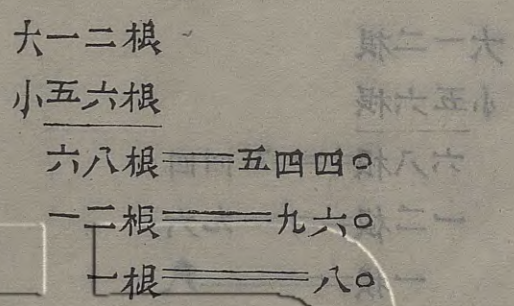 大一二根
小五六根
六八根==五四四〇
一二根==九六〇
一根==八〇